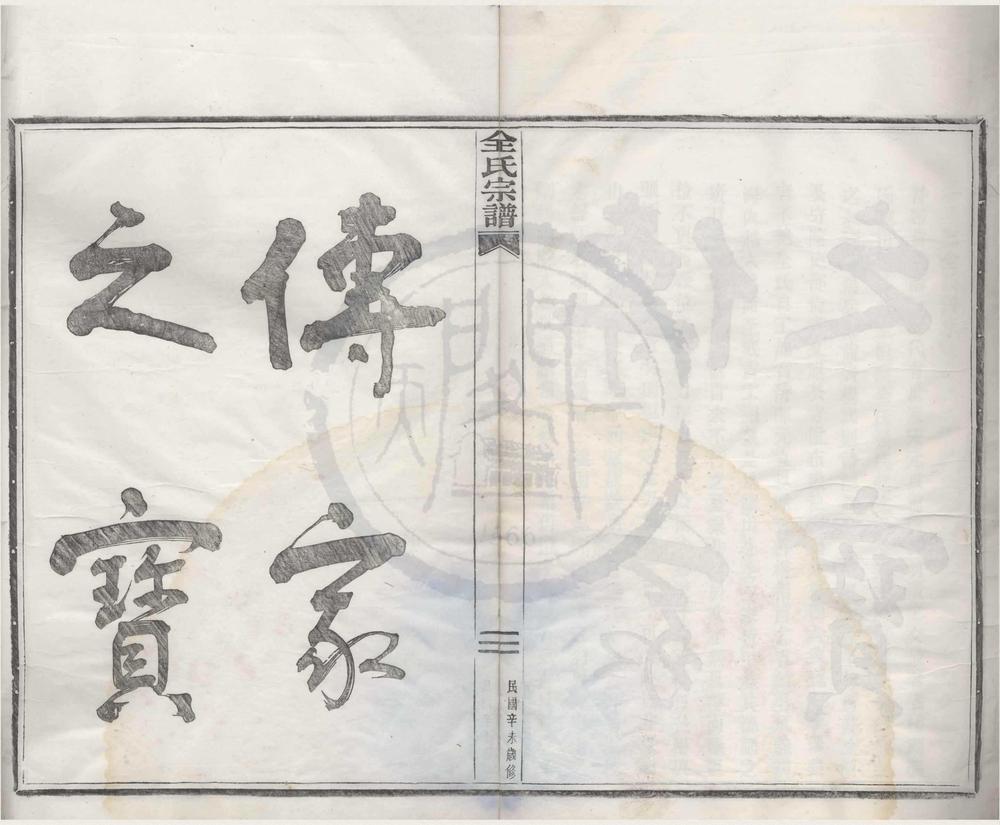 全氏宗譜
三
民國辛未歲修
傳家
之寶